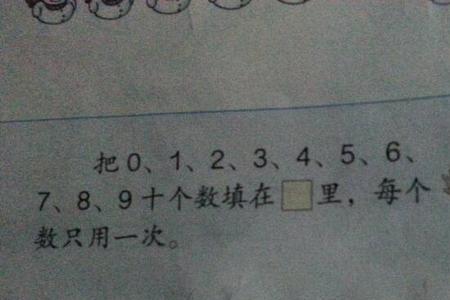 把0、1、2、3、4、5、6、
7、8、9十个数填在□里，每个
数只用一次。